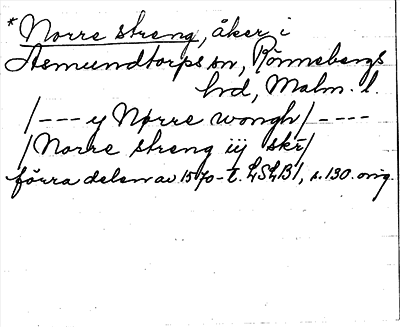 *Norre streng, åker i
Asmundtorps sn, Rönnebergs
hd, Malm. l.
/--- y Nørre wongh/----
/Norre streng iij skr/
förra delen av 1570-t. LSLB1, s. 130. orig.